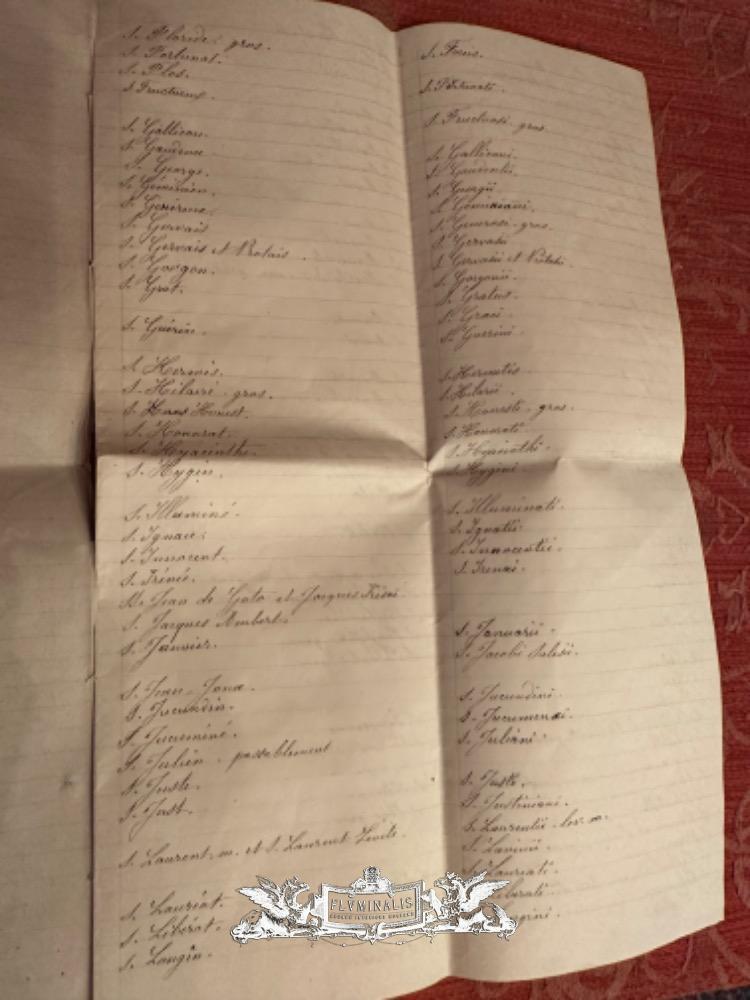 S. Floride. gros.
S. Fortunat.
S. Flos.
S. Fructueux.
S. Gallican.
S. Gaudence
S. George.
S. Géminien.
S. Généreux.
S. Gervais
S. Gervais et Protais.
S. Gorgon.
S. Grat.
S. Guérin.
S. Hermès.
S. Hilaire. gros.
S. Honest.
S. Honorat.
S. Hyacinthe.
S. Hygin.
S. Illuminé.
S. Ignace.
S. Innocent.
S. Iréné.
SS. Jean de Goto et Jacques
S. Jacques Ambert.
S. Janvier.
S. Jean
S. Jucundin.
S. Jucuminé.
S. Julien. passablement
S. Juste.
S. Just.
S. Laurent. m. et S. Laurent Lévite.
S. Lauréat.
S. Libérat.
S. Longin.
S. Fortunati.
S. Fructuosi gros
S. Gallicani.
S. Gaudentii.
S. Georgii.
S. Generosi. gros.
S. Gervasii
S. Gervasii et Protasii.
S. Gorgonii.
S. Gratus.
S. Grati.
S. Guerini.
S. Hermetis.
S. Hilarii.
S. Honeste. gros.
S. Honorati.
S. Hyacinthi.
S. Hygini.
S. Illuminati.
S. Ignatii.
S. Innocentii.
S. Irenei.
S. Januarii.
S. Jacobi Salesii.
S. Jucundini.
S. Juliani.
S. Justi.
S. Justiniani.
S. Laurentii. lev. m.
S. Laureati.
Liberati.
FLVMINALIS